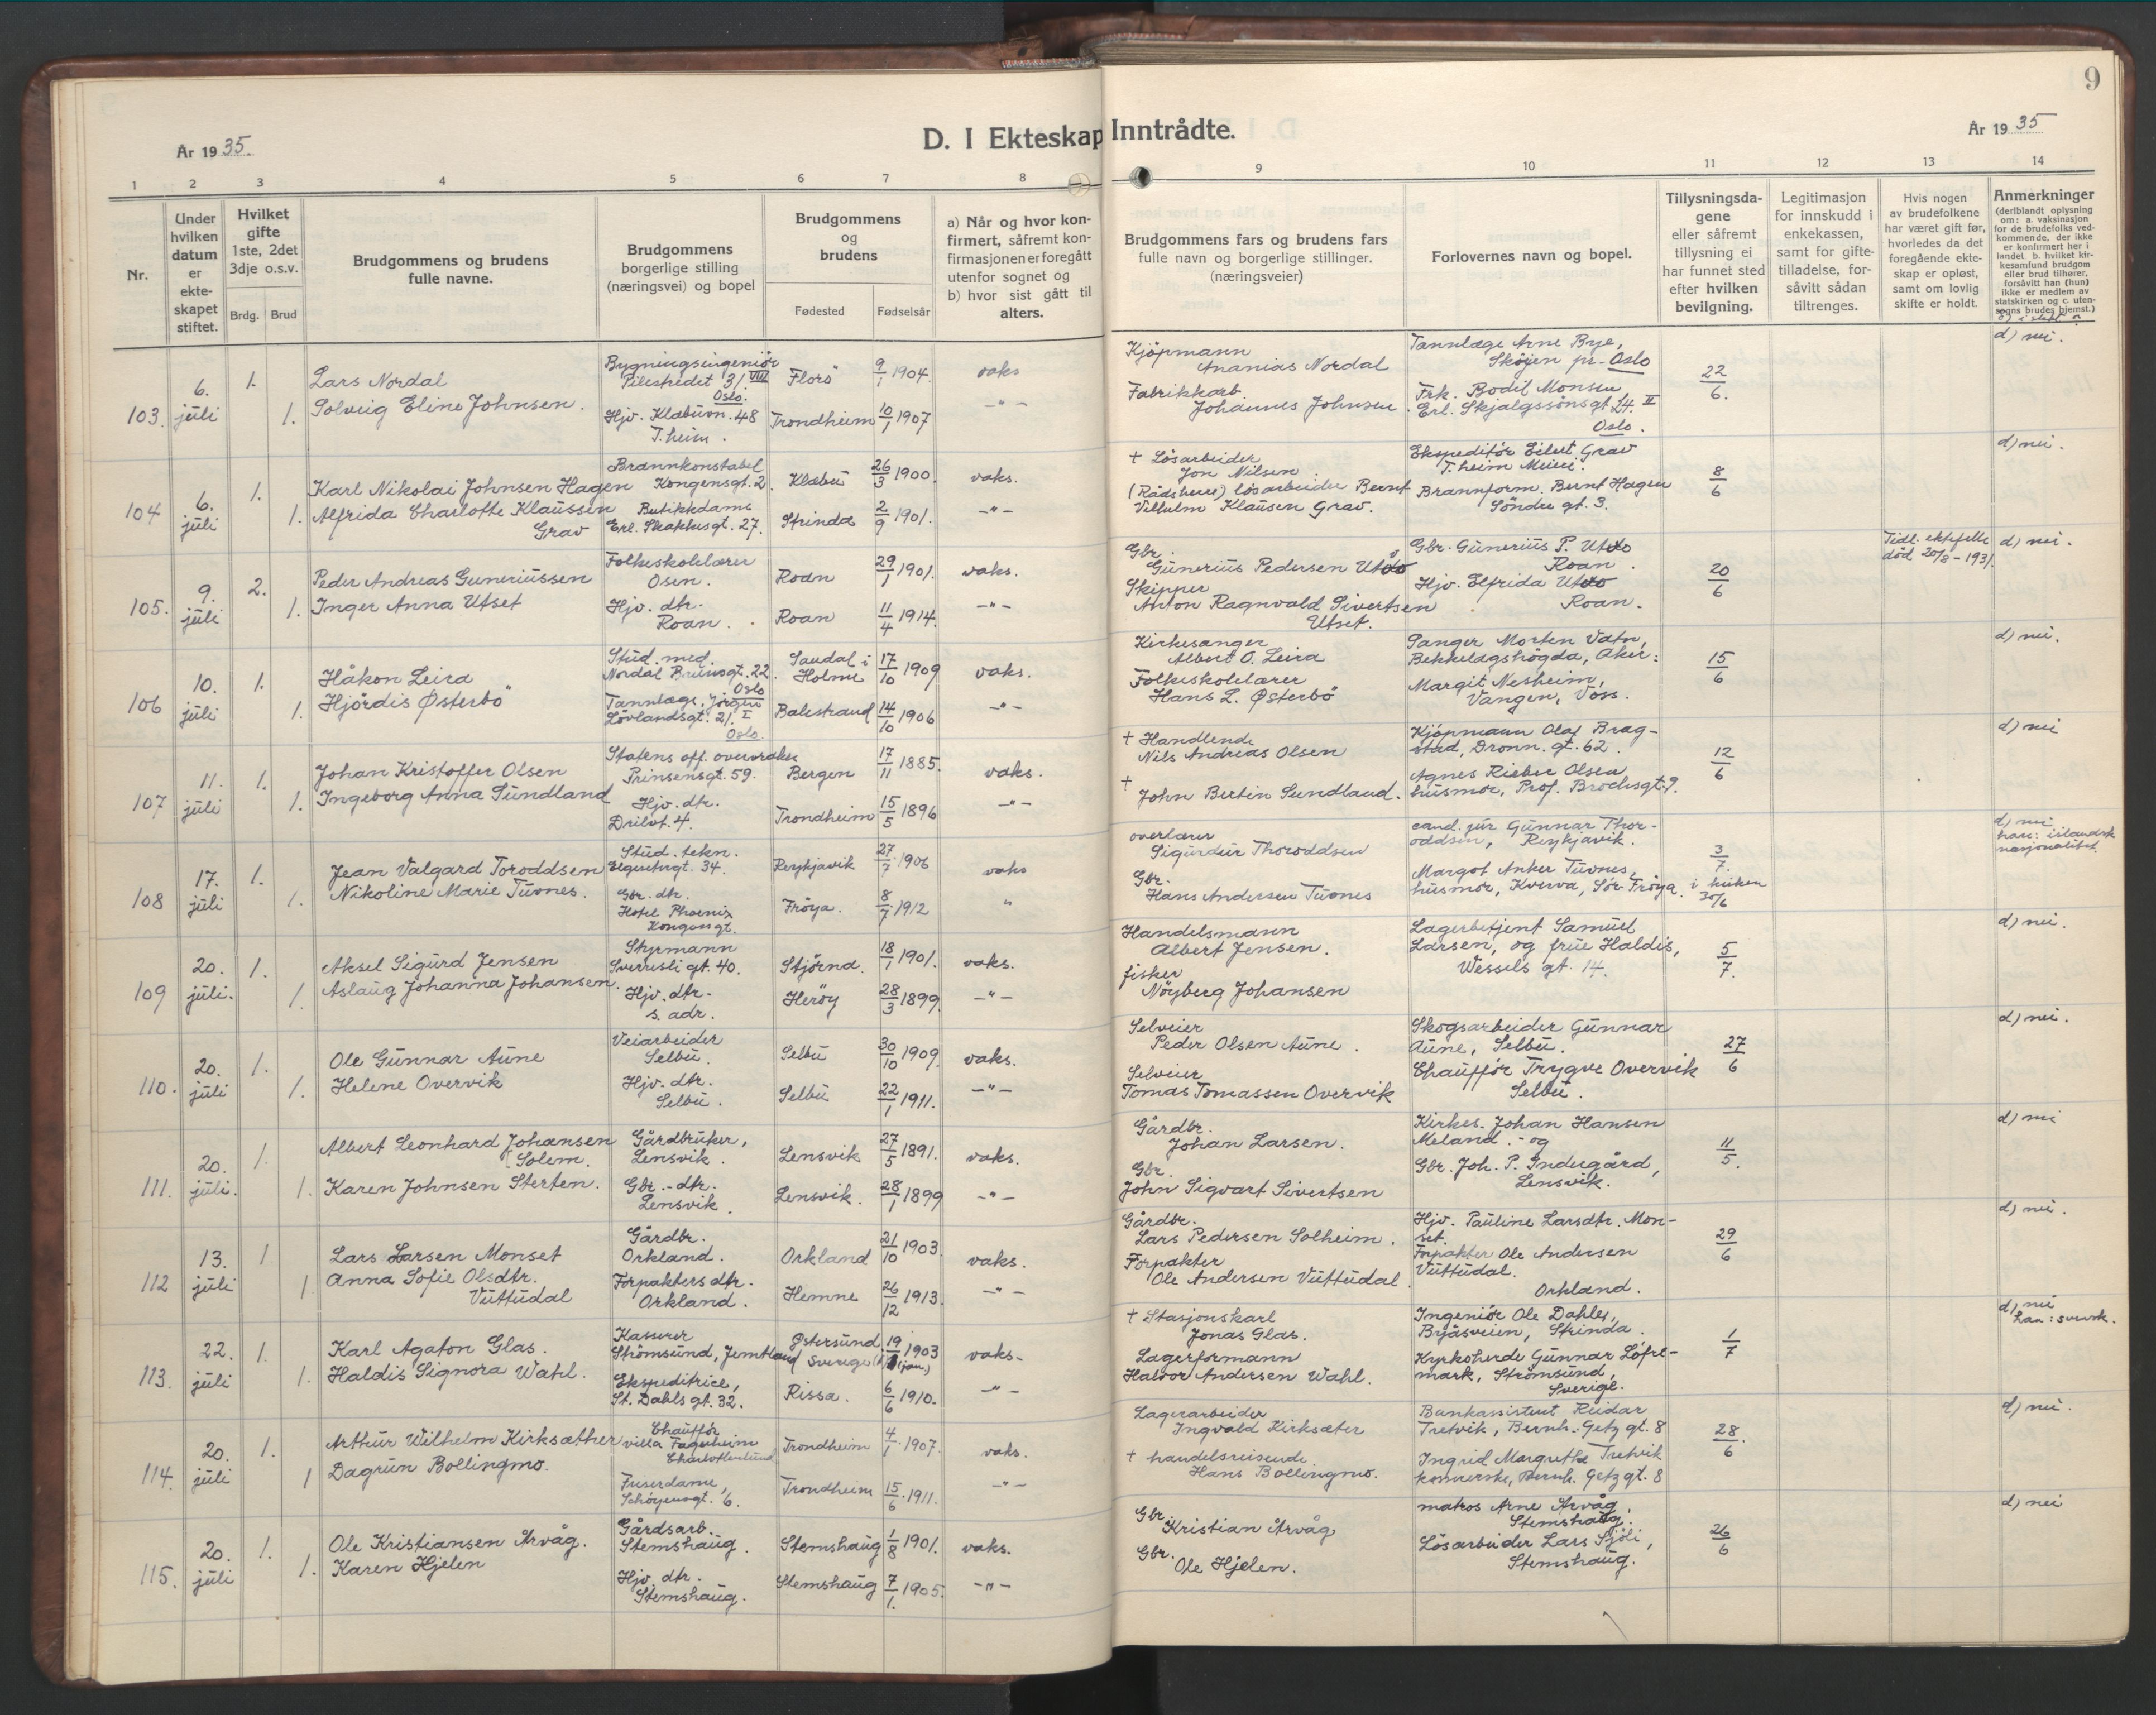 9
År 1935.
D. I Ekteskap Inntrådte.
År 1935
1 2 3 4 5 6 7 8 9 10 11 12 13 14
Nr.
Under hvilken datum er ekteskapet stiftet.
Hvilket gifte 1ste, 2det 3dje o.s.v.
Brdg. Brud
Brudgommens og brudens fulle navne.
Brudgommens borgerlige stilling (næringsvei) og bopel
Brudgommens og brudens
Fødested Fødselsår
a) Når og hvor konfirmert, såfremt konfirmasjonen er foregått utenfor sognet og
b) hvor sist gått til alters.
Brudgommens fars og brudens fars fulle navn og borgerlige stillinger. (næringsveier)
Forlovernes navn og bopel.
Tillysningsdagene eller såfremt tillysning ei har funnet sted efter hvilken bevilgning.
Legitimasjon for innskudd i enkekassen, samt for giftetilladelse, forsåvitt sådan tiltrenges.
Hvis nogen av brudefolkene har været gift før, hvorledes da det foregående ekteskap er opløst, samt om lovlig skifte er holdt.
Anmerkninger
(deriblandt oplysning om: a. vaksinasjon for de brudefolks vedkommende, der ikke er konfirmert her i landet b. hvilket kirkesamfund brudgom eller brud tilhører, forsåvitt han (hun) ikke er medlem av statskirken og c. utensogns brudes hjemst.)
103. 6. juli 1. 1.
Lars Nordal
Solveig Eline Johnsen.
Bygningsingeniør
Pilestredet 31. VIII
Oslo.
Hjv. Klæbuvn. 48
T.heim.
Florö 9/1 1904. vaks
Trondheim 10/1 1907 -"-
Kjöpmann
Ananias Nordal
Fabrikkarb.
Johannes Johnsen.
Tannlæge Arne Brye,
Skøjen pr. Oslo
Frk. Bodil Monsen,
Erl. Skjalgssönsgt. 14. II
Oslo.
22/6.
d) nei.
104 6. juli 1. 1.
Karl Nikolai Johnsen Hagen
Alfrida Charlotte Klaussen
Grav
Brannkonstabel
Kongensgt. 2.
Butikkdame
Erl. Skakkesgt. 27.
Klæbu 26/3 1900. vaks.
Strinda 2/9 1901. -"-
+ Lösarbeider
Jon Nilsen.
(Rådsherre) lösarbeider Bernt
Vilhelm Klausen Grav.
Ekspeditör Eilert Grav
T.heim Meieri.
Brannform. Bernt Hagen
Söndre gt. 3.
8/6
d) nei.
105. 9. juli 2. 1.
Peder Andreas Guneriussen
Inger Anna Utset
Folkeskolelærer
Osen.
Hjv. dtr.
Roan.
Roan 29/1 1901. vaks.
Roan 11/4 1914. -"-
Gbr.
Gunerius Pedersen
Skipper
Anton Ragnvald Sivertsen
Utset.
Gbr. Gunerius P.
Roan.
Hjv. Elfrida
Roan.
20/6
Tidl. ektefelle
död 20/8-1931.
d) nei.
106 10. juli 1. 1.
Håkon Leira
Hjördis Østerbö
Stud. med.
Nordal Brunsgt. 22.
Oslo
Tannlæge, Jørgen
Lövlandsgt. 21. I
Oslo.
Saudal i
Holme 17/10 1909 vaks.
Balestrand 14/10 1906 -"-
Kirkesanger
Albert O. Leira
Folkeskolelærer
Hans L. Østerbö
Sanger Morten Vatn,
Bekkelagshögda, Aker:
Margit Nesheim,
Vangen, Voss.
15/6
d) nei.
107 11. juli 1. 1.
Johan Kristoffer Olsen
Ingeborg Anna Sundland
Statens off. overvraker
Prinsensgt. 59.
Hjv. dtr.
Drilvt. 4.
Bergen 17/11 1885. vaks.
Trondheim 15/5 1896 -"-
+ Handlende
Nils Andreas Olsen
+
John Bertin Sundland.
Kjöpmann Olaf Bragstad, Dronn. gt. 62.
Agnes Rieber Olsen
husmor, Prof. Brochsgt. 9.
12/6
d) nei
108 17. juli 1. 1.
Jean Valgard Toroddsen
Nikoline Marie Tuvnes.
Stud. tekn.
Elgesetergt. 34.
Gbr. dtr.
Hotel Phoenix
Kongensgt.
Reykjavik 27/7 1906 vaks
Fröya. 8/7 1912 "
overlærer
Sigurdur Thoroddsen
Gbr.
Hans Andersen Tuvnes
cand. jur Gunnar Thoroddsen, Reykjavik.
Margot Anker Tuvnes,
husmor, Kverva, Sör-Fröya.
3/7.
i kirken
30/6
d) nei
han: islandsk
nasjonalitet.
109 20. juli. 1. 1.
Aksel Sigurd Jensen
Aslaug Johanna Johansen.
Styrmann
Sverresli gt. 40.
Hjv. dtr.
s. adr.
Stjörnd. 18/1 1901. vaks.
Heröy 28/3 1899. -"-
Handelsmann
Albert Jensen.
fisker
Nöyberg Johansen
Lagerbetjent Samuel
Larsen, og frue Haldis,
Wessels gt. 14.
5/7.
d) nei.
110. 20. juli 1. 1.
Ole Gunnar Aune
Helene Overvik
Veiarbeider
Selbu.
Hjv. dtr.
Selbu.
Selbu 30/10 1909. vaks.
Selbu 22/1 1911. -"-
Selveier
Peder Olsen Aune.
Selveier
Tomas Tomassen Overvik
Skogsarbeider Gunnar
Aune, Selbu.
Chauffør Trygve Overvik
Selbu.
27/6
d) nei.
111. 20. juli. 1. 1.
Albert Leonhard Johansen
Solem.
Karen Johnsen Sterten.
Gårdbruker,
Lensvik.
Gbr.-dtr.
Lensvik.
Lensvik 27/5 1891. vaks.
Lensvik. 28/1 1899 -"-
Gårdbr.
Johan Larsen.
Gbr.
John Sigvart Sivertsen
Kirkes. Johan Hansen
Meland. - og
Gbr. Joh. P. Indergård,
Lensvik.
11/5.
d) nei
112 13. juli 1 1
Lars Larsen Monset
Anna Sofie Olsdtr.
Vuttudal
Gårdbr.
Orkland.
Forpakters dtr.
Orkland.
Orkland 21/10 1903. vaks.
Hemne 26/12 1913. -"-
Gårdbr.
Lars Pedersen Solheim.
Forpakter
Ole Andersen Vuttudal.
Hjv. Pauline Larsdtr. Monset.
Forpakter Ole Andersen
Vuttudal.
Orkland.
29/6
d) nei.
113. 22. juli 1. 1.
Karl Agaton Glas.
Haldis Signora Wahl.
Kasserer
Strömsund, Jemtland
Ekspeditrice,
St. Dahls gt. 32.
Østersund, Sverige 19/1 (jan.) 1903 vaks-
Rissa. 6/6 1910. -"-
+ Stasjonskarl
Jonas Glas.
Lagerformann
Halvor Andersen Wahl.
Ingeniör Ole Dahles,
Bråsveien, Strinda.
Kyrkoherde Gunnar Löfvemark, Strömsund,
Sverige.
1/7
d) nei
han: svensk.
114. 20. juli 1. 1
Arthur Wilhelm Kirksæther
Dagrun Bollingmo.
Chauffør
villa Fagerheim
Charlottenlund
Friserdame,
Schöyensgt. 6.
Trondheim 4/1 1907. vaks.
Trondheim 15/6 1911. -"-
Lagerarbeider
Ingvald Kirksæter
+ handelsreisende
Hans Bollingmo.
Bankassistent Reidar
Tretvik, Bernh. Getz gt. 8
Ingrid Margrethe Tretvik
Bernh. Getz gt. 8
28/6
d) nei.
115. 20. juli 1. 1.
Ole Kristiansen Arvåg.
Karen Hjelen
Gårdsarb.
Stemshaug.
Hjv. dtr.
Stemshaug.
Stemshaug 1/8 1901. vaks.
Stemshaug 7/1. 1905. -"-
Gbr.
Kristian Arvåg
Gbr.
Ole Hjelen.
matros Arne Arvåg,
Stemshaug.
Lösarbeider Lars Sjöli,
Stemshaug.
26/6
d) nei